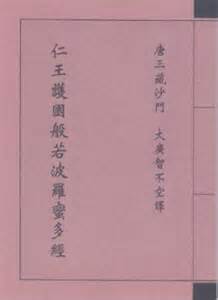 唐三藏沙門　大廣智不空譯
仁王護國般若波羅蜜多經